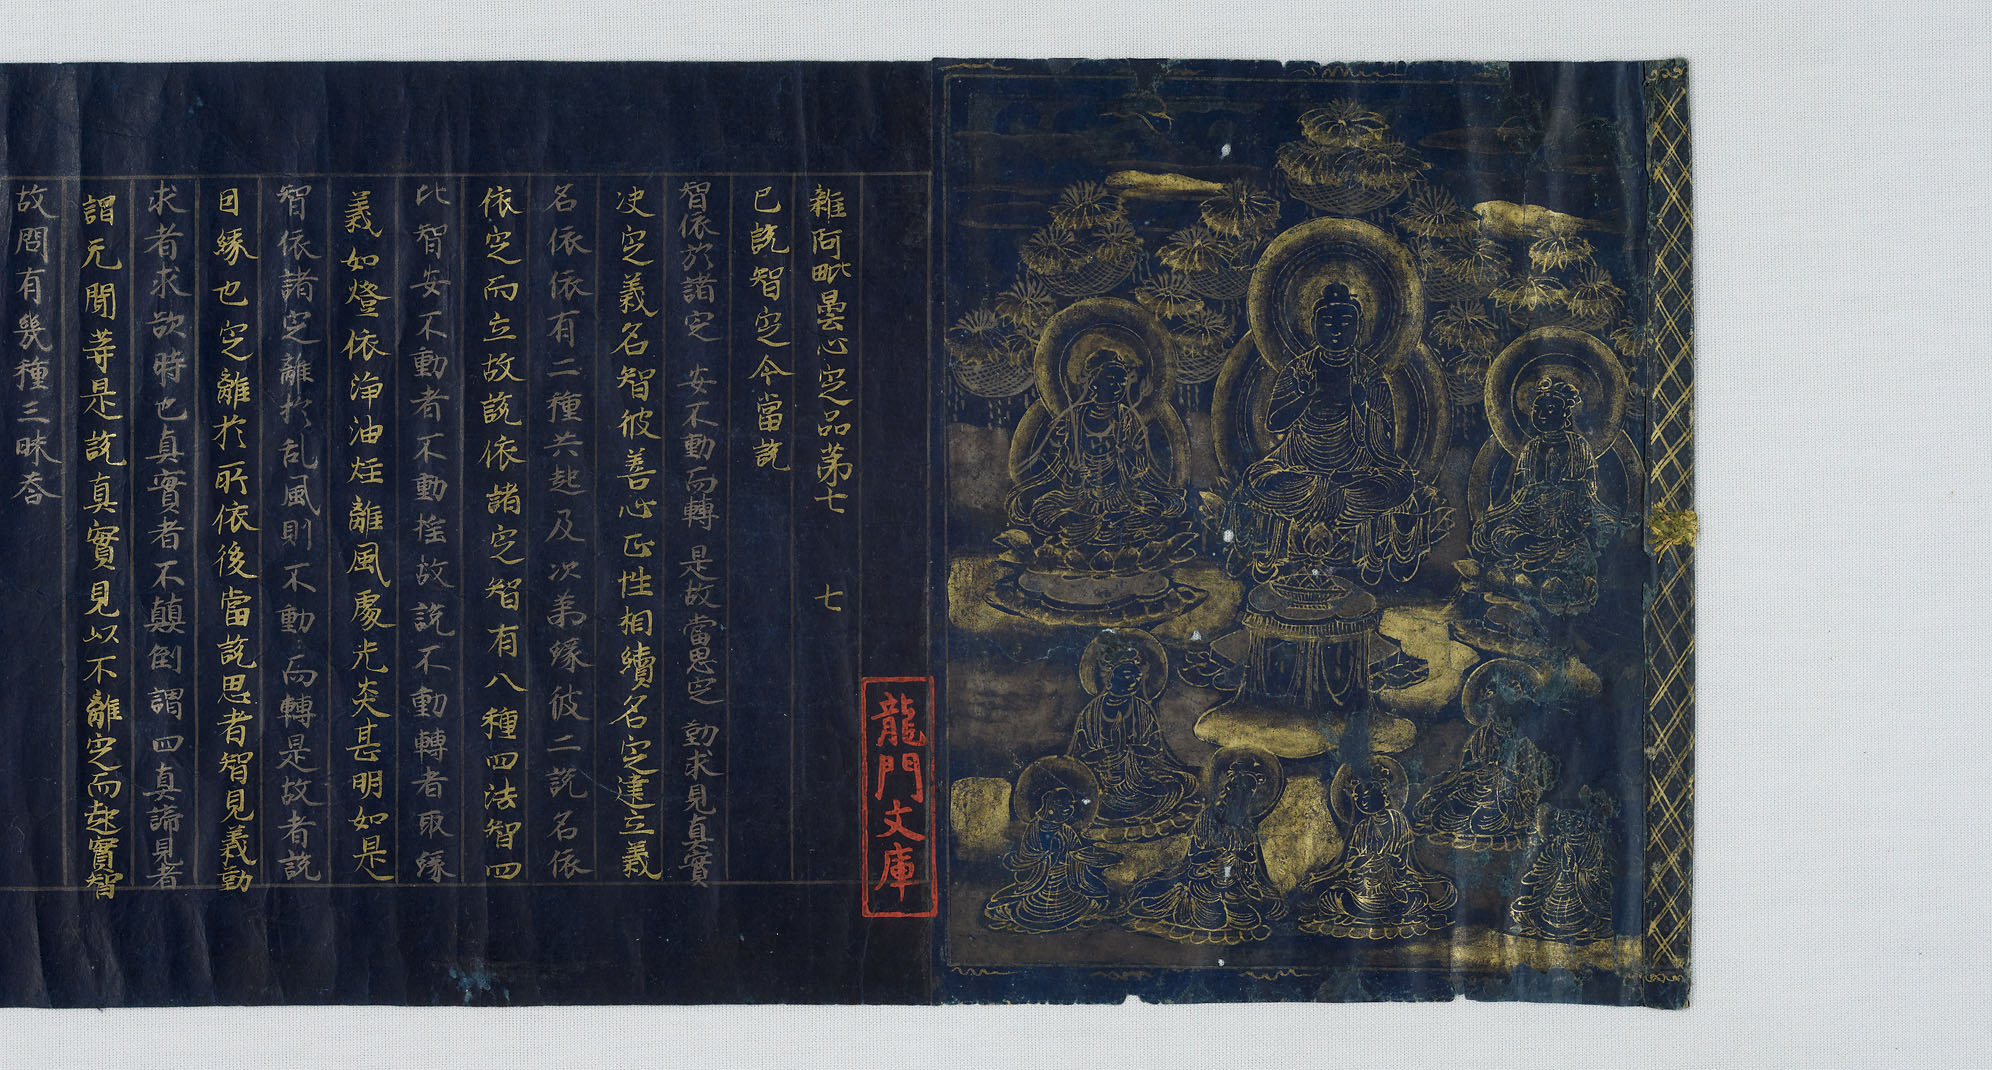 雜阿毗曇心定品第七　七
已說智定今當說
智依於諸定　安不動而轉　是故當思定　勤求見真實
决定義名智彼善心正性相續名定建立義
名依依有二種共起及次第緣彼二說名依
依定而立故說依諸定智有八種四法智四
比智安不動者不動搖故說不動轉者取緣
義如燈依淨油炷離風處光炎甚明如是
智依諸定離於乱風則不動而轉是故者說
因緣也定離於所依後當說思者智見義勤
求者求欲時也真實者不顛倒謂四真諦見者
謂无聞等是說真實見以不離定而起實智
故問有幾種三昧答
龍門文庫